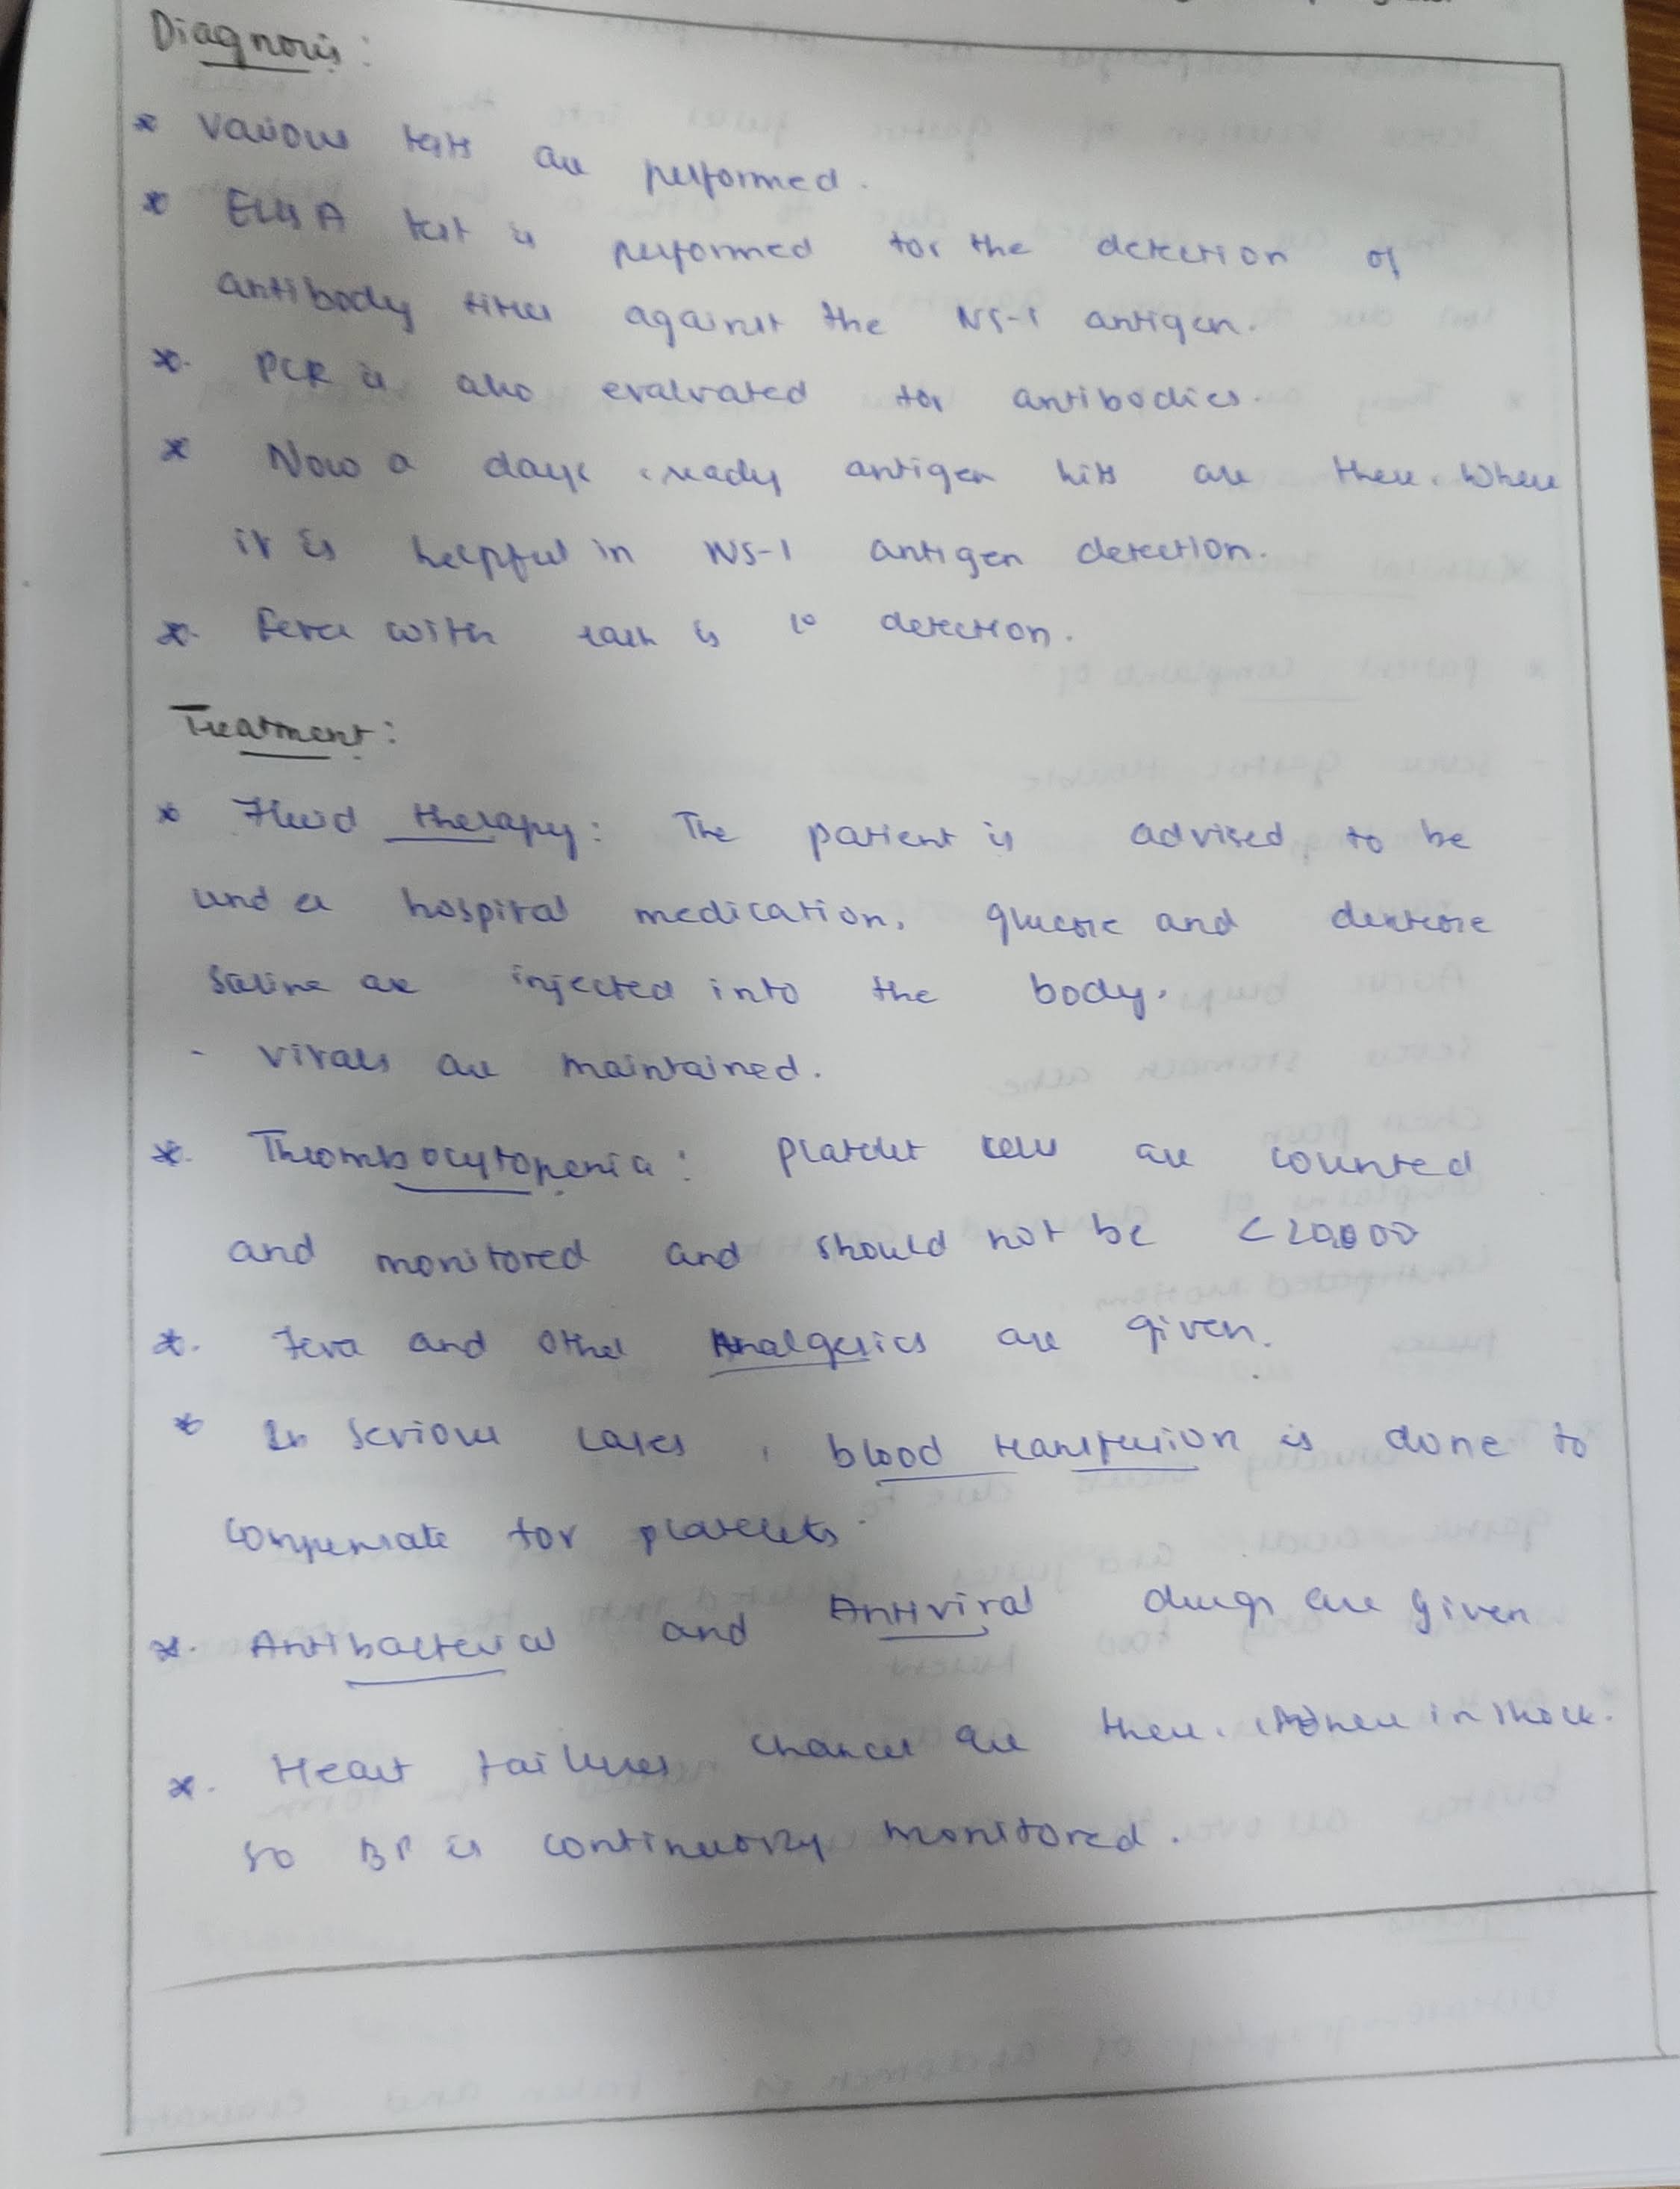 Diagnosis :
* Various tests are performed.
* ELISA test is performed for the detection of
antibody titres against the NS-1 antigen.
*. PCR is also evaluated for antibodies.
* Now a days ready antigen kits are there. Where
it is helpful in NS-1 antigen detection.
*. Fever with rash is 1° detection.
Treatment :
* Fluid therapy : The patient is advised to be
under hospital medication, glucose and dextrose
saline are injected into the body.
- Vitals are maintained.
*. Thrombocytopenia : Platelet cells are counted
and monitored and should not be < 20,000
*. Fever and other Analgesics are given.
* In serious cases, blood transfusion is done to
compensate for platelets.
*. Antibacterial and Antiviral drugs are given
*. Heart failures chances are there. When in shock.
so BP is continuously monitored.